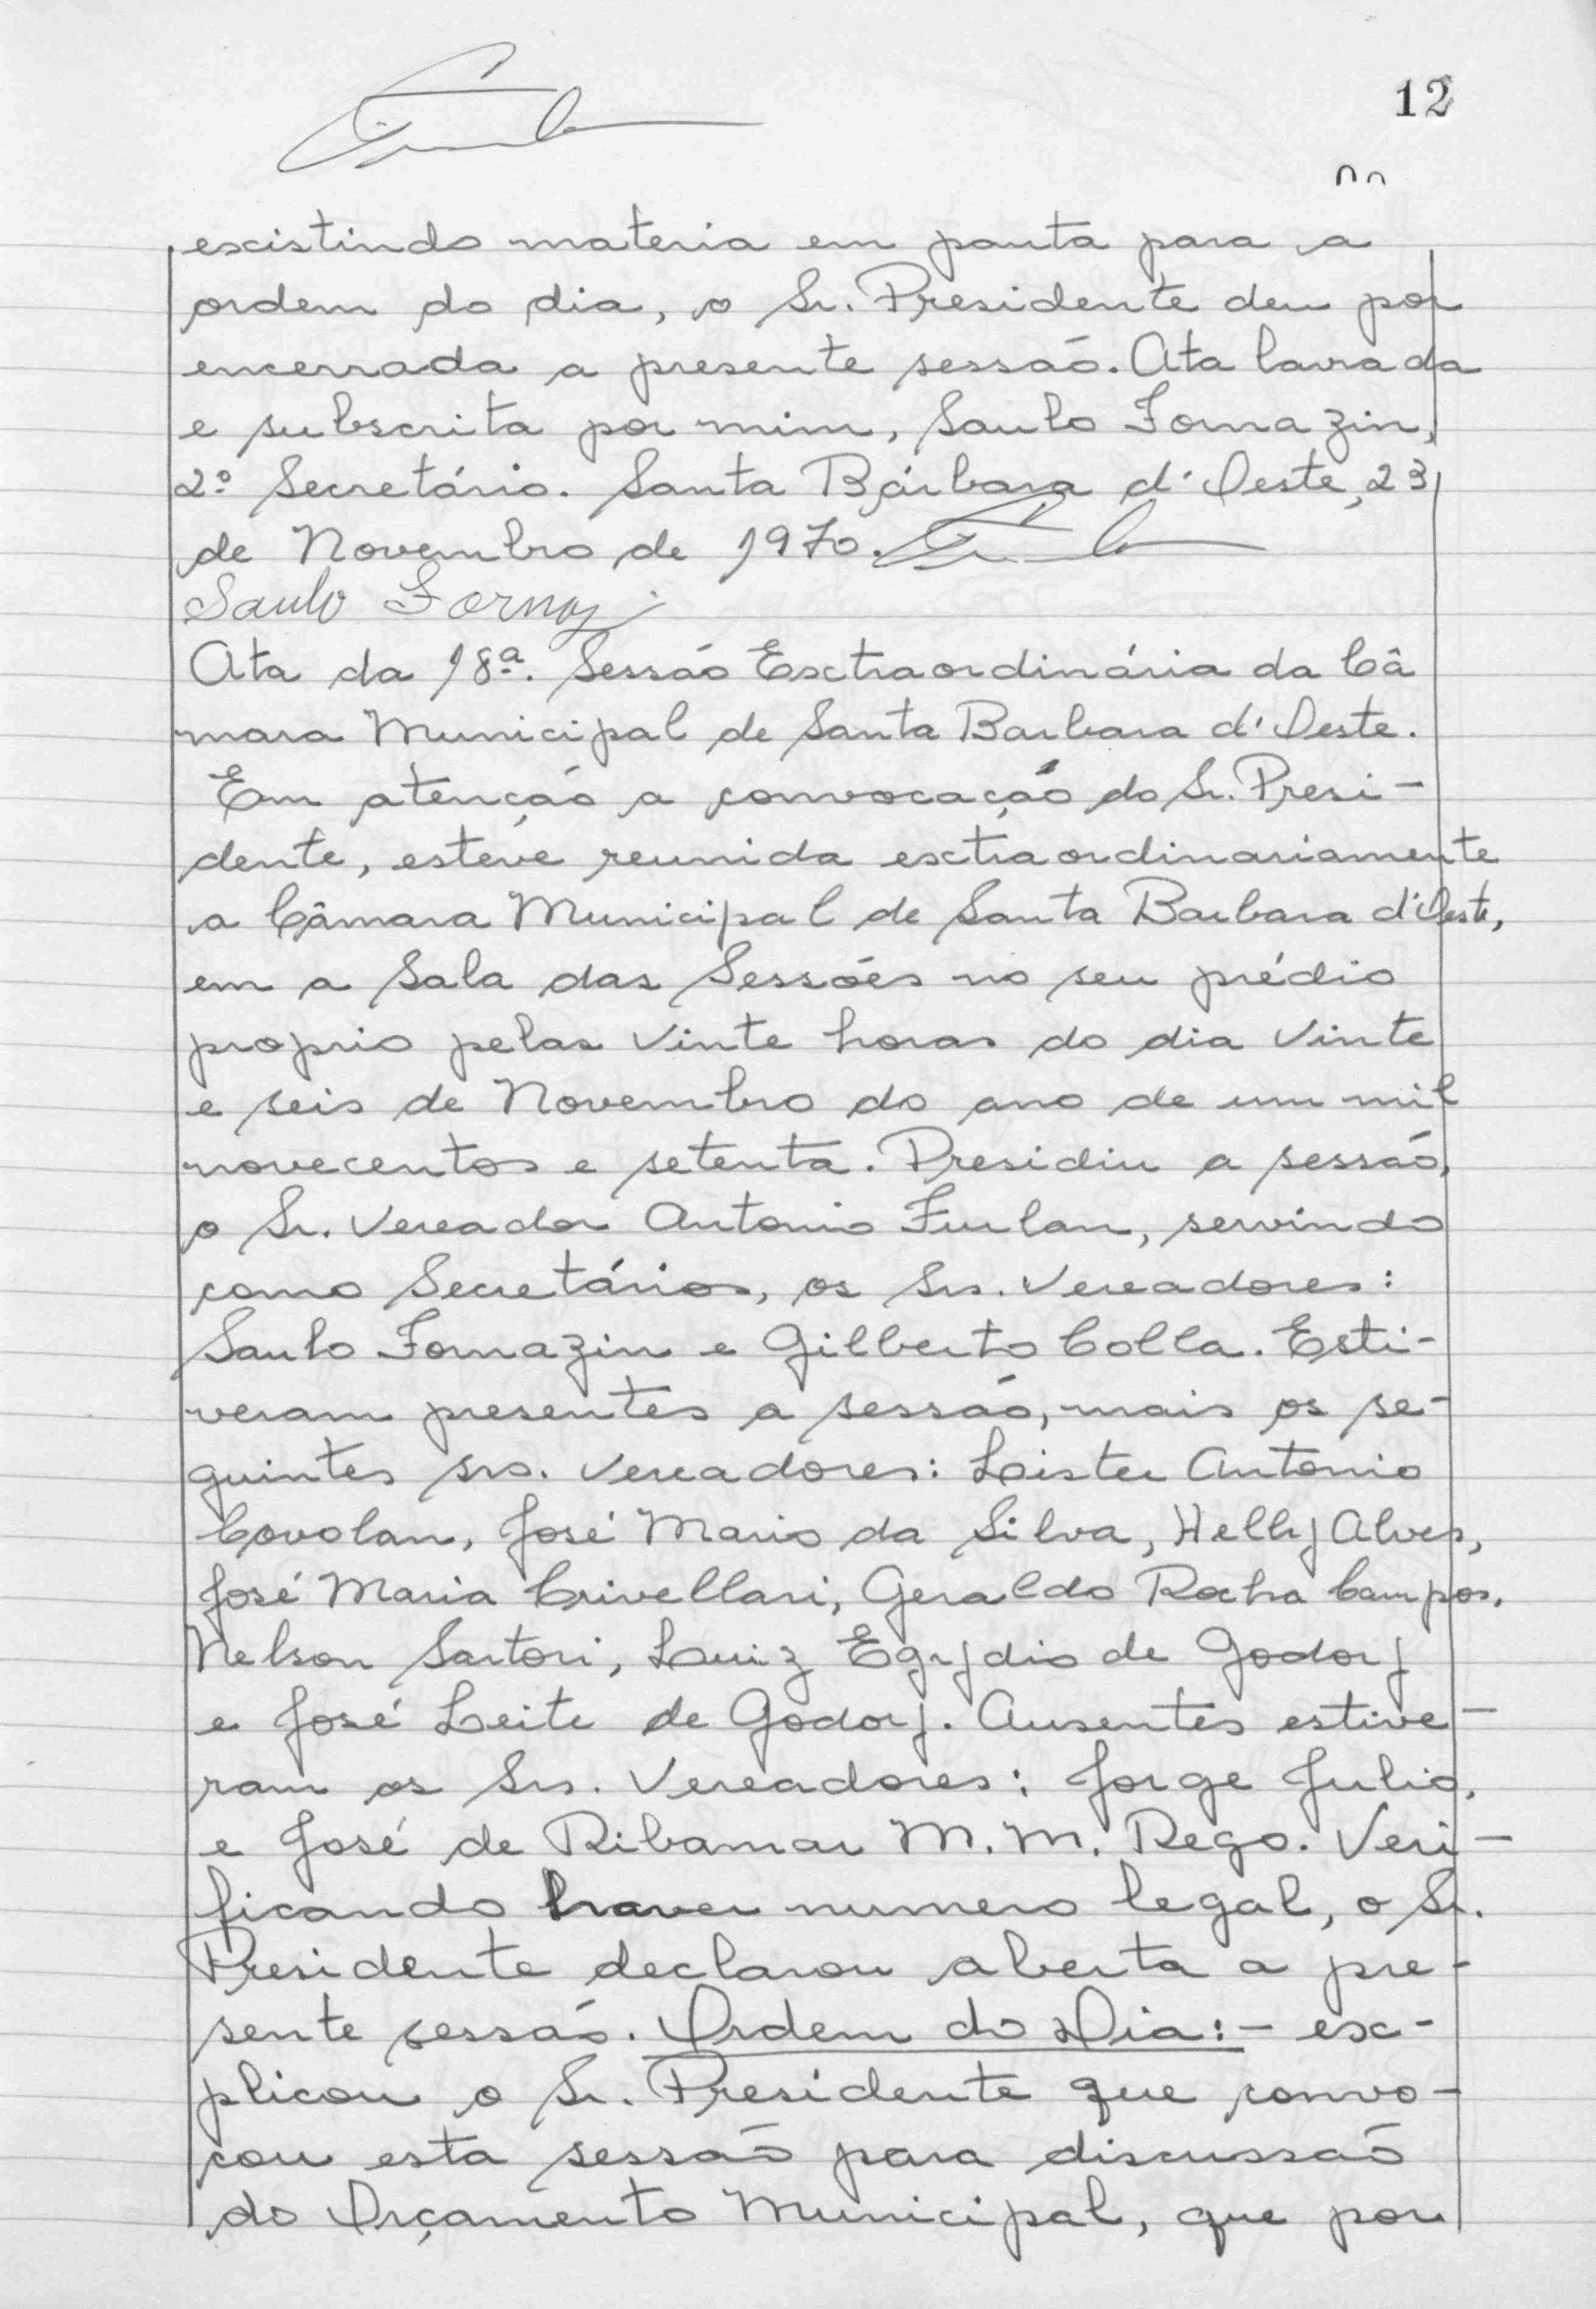 12
existindo materia em pauta para a
ordem do dia, o Sr. Presidente deu por
encerrada a presente sessão. Ata lavrada
e subscrita por mim, Saulo Fornazin,
2º Secretário. Santa Bárbara d'Oeste, 23
de Novembro de 1970.
Saulo Fornaz
Ata da 18ª. Sessão Extraordinária da Câ
mara Municipal de Santa Barbara d'Oeste.
Em atenção a convocação do Sr. Presi-
dente, esteve reunida extraordinariamente
a Câmara Municipal de Santa Barbara d'Oeste,
em a Sala das Sessões no seu prédio
proprio pelas vinte horas do dia vinte
e seis de Novembro do ano de um mil
novecentos e setenta. Presidiu a sessão,
o Sr. Vereador Antonio Furlan, servindo
como Secretários, os Srs. Vereadores:
Saulo Fornazin e Gilberto Colla. Esti-
veram presentes a sessão, mais os se-
guintes srs. Vereadores: Leister Antonio
Covolan, José Mario da Silva, Helly Alves,
José Maria Crivellari, Geraldo Rocha Campos,
Nelson Sartori, Luiz Egydio de Godoy
e José Leite de Godoy. Ausentes estive-
ram os Srs. Vereadores: Jorge Julio,
e José de Ribamar M. M. Rego. Veri-
ficando haver numero legal, o Sr.
Presidente declarou aberta a pre-
sente sessão. Ordem do Dia:- ex-
plicou o Sr. Presidente que convo-
cou esta sessão para discussão
do Orçamento Municipal, que por